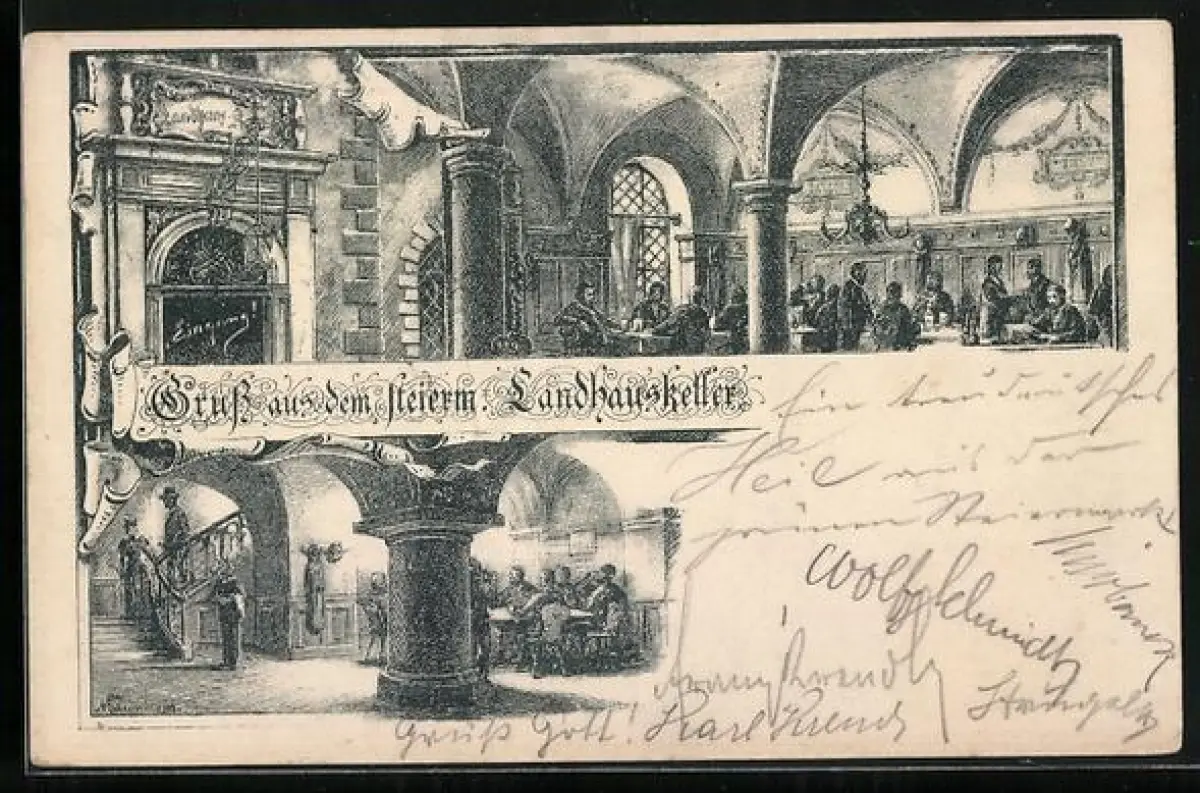 Landhaus
Eingang
Gruß aus dem steierm. Landhauskeller.
Ein treudeutsches
Heil aus der
grünen Steiermark
Wolf Schmidt
Franz
Grüß Gott! Karl